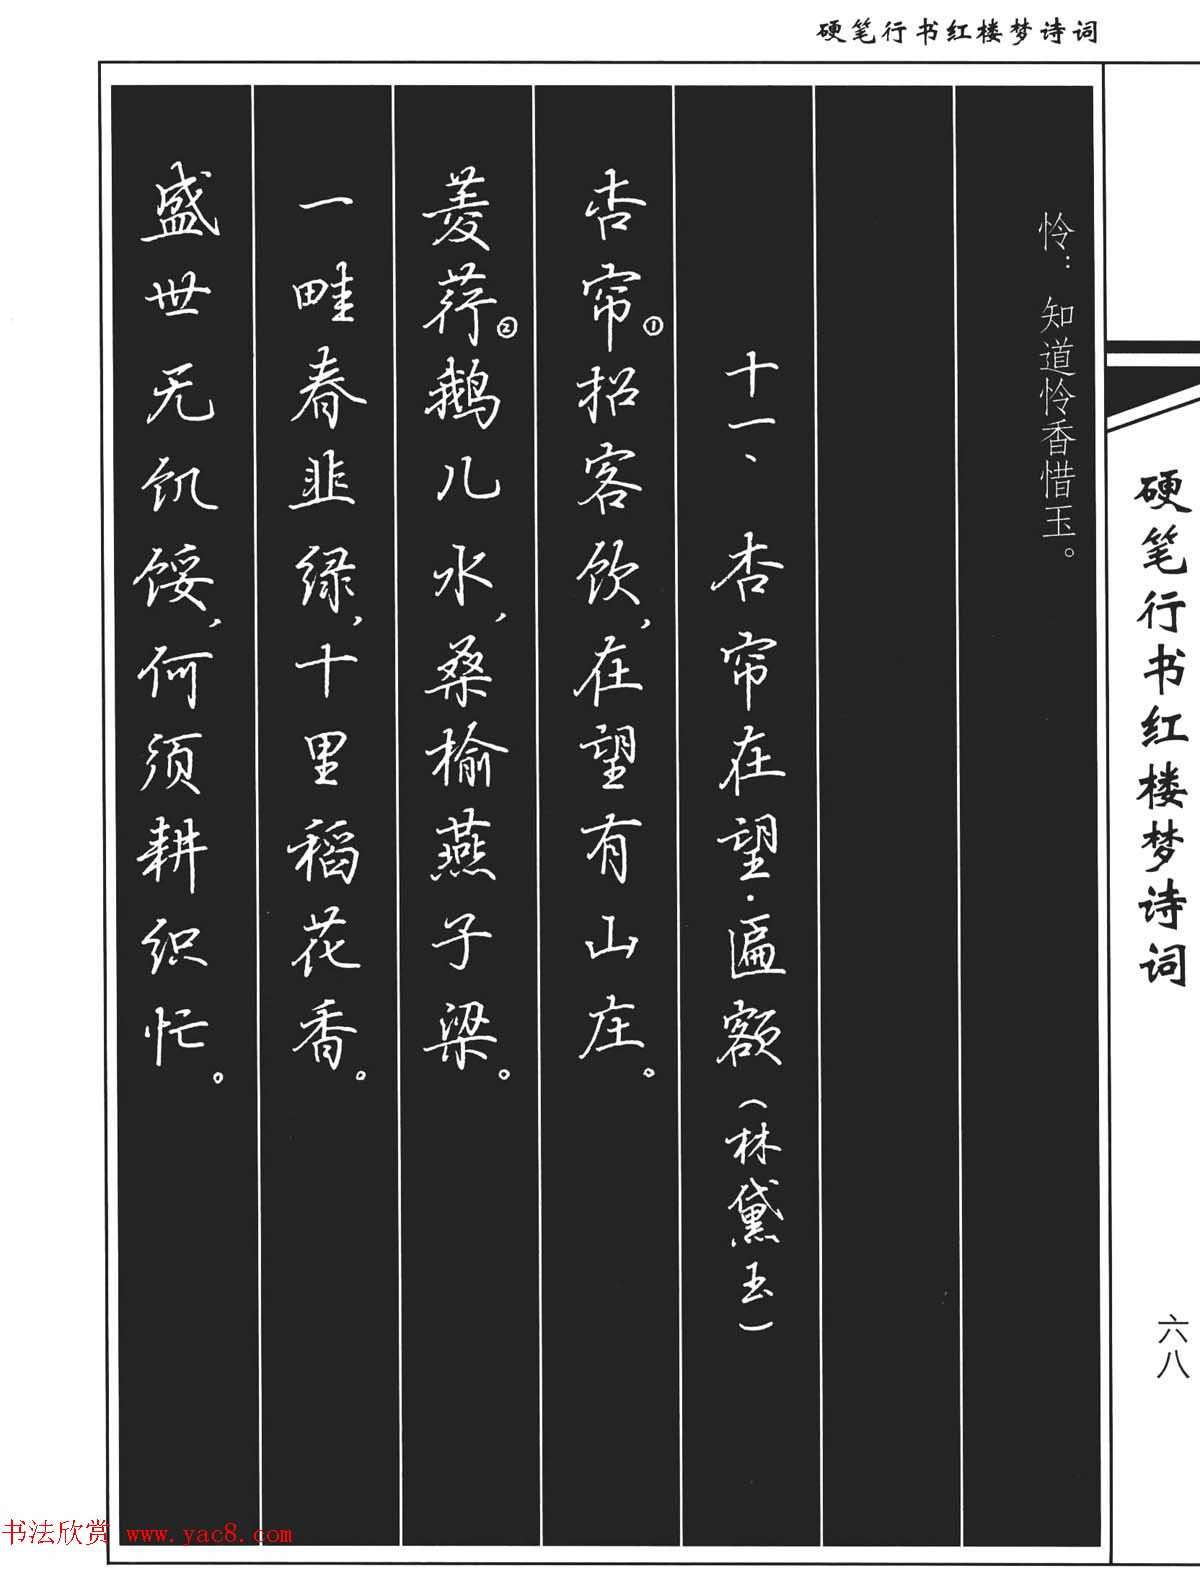 硬笔行书红楼梦诗词
怜：知道怜香惜玉。
十一、杏帘在望·匾额（林黛玉）
杏帘①招客饮，在望有山庄。
菱荇②鹅儿水，桑榆燕子梁。
一畦春韭绿，十里稻花香。
盛世无饥馁，何须耕织忙。
硬笔行书红楼梦诗词
六八
书法欣赏 www.yac8.com